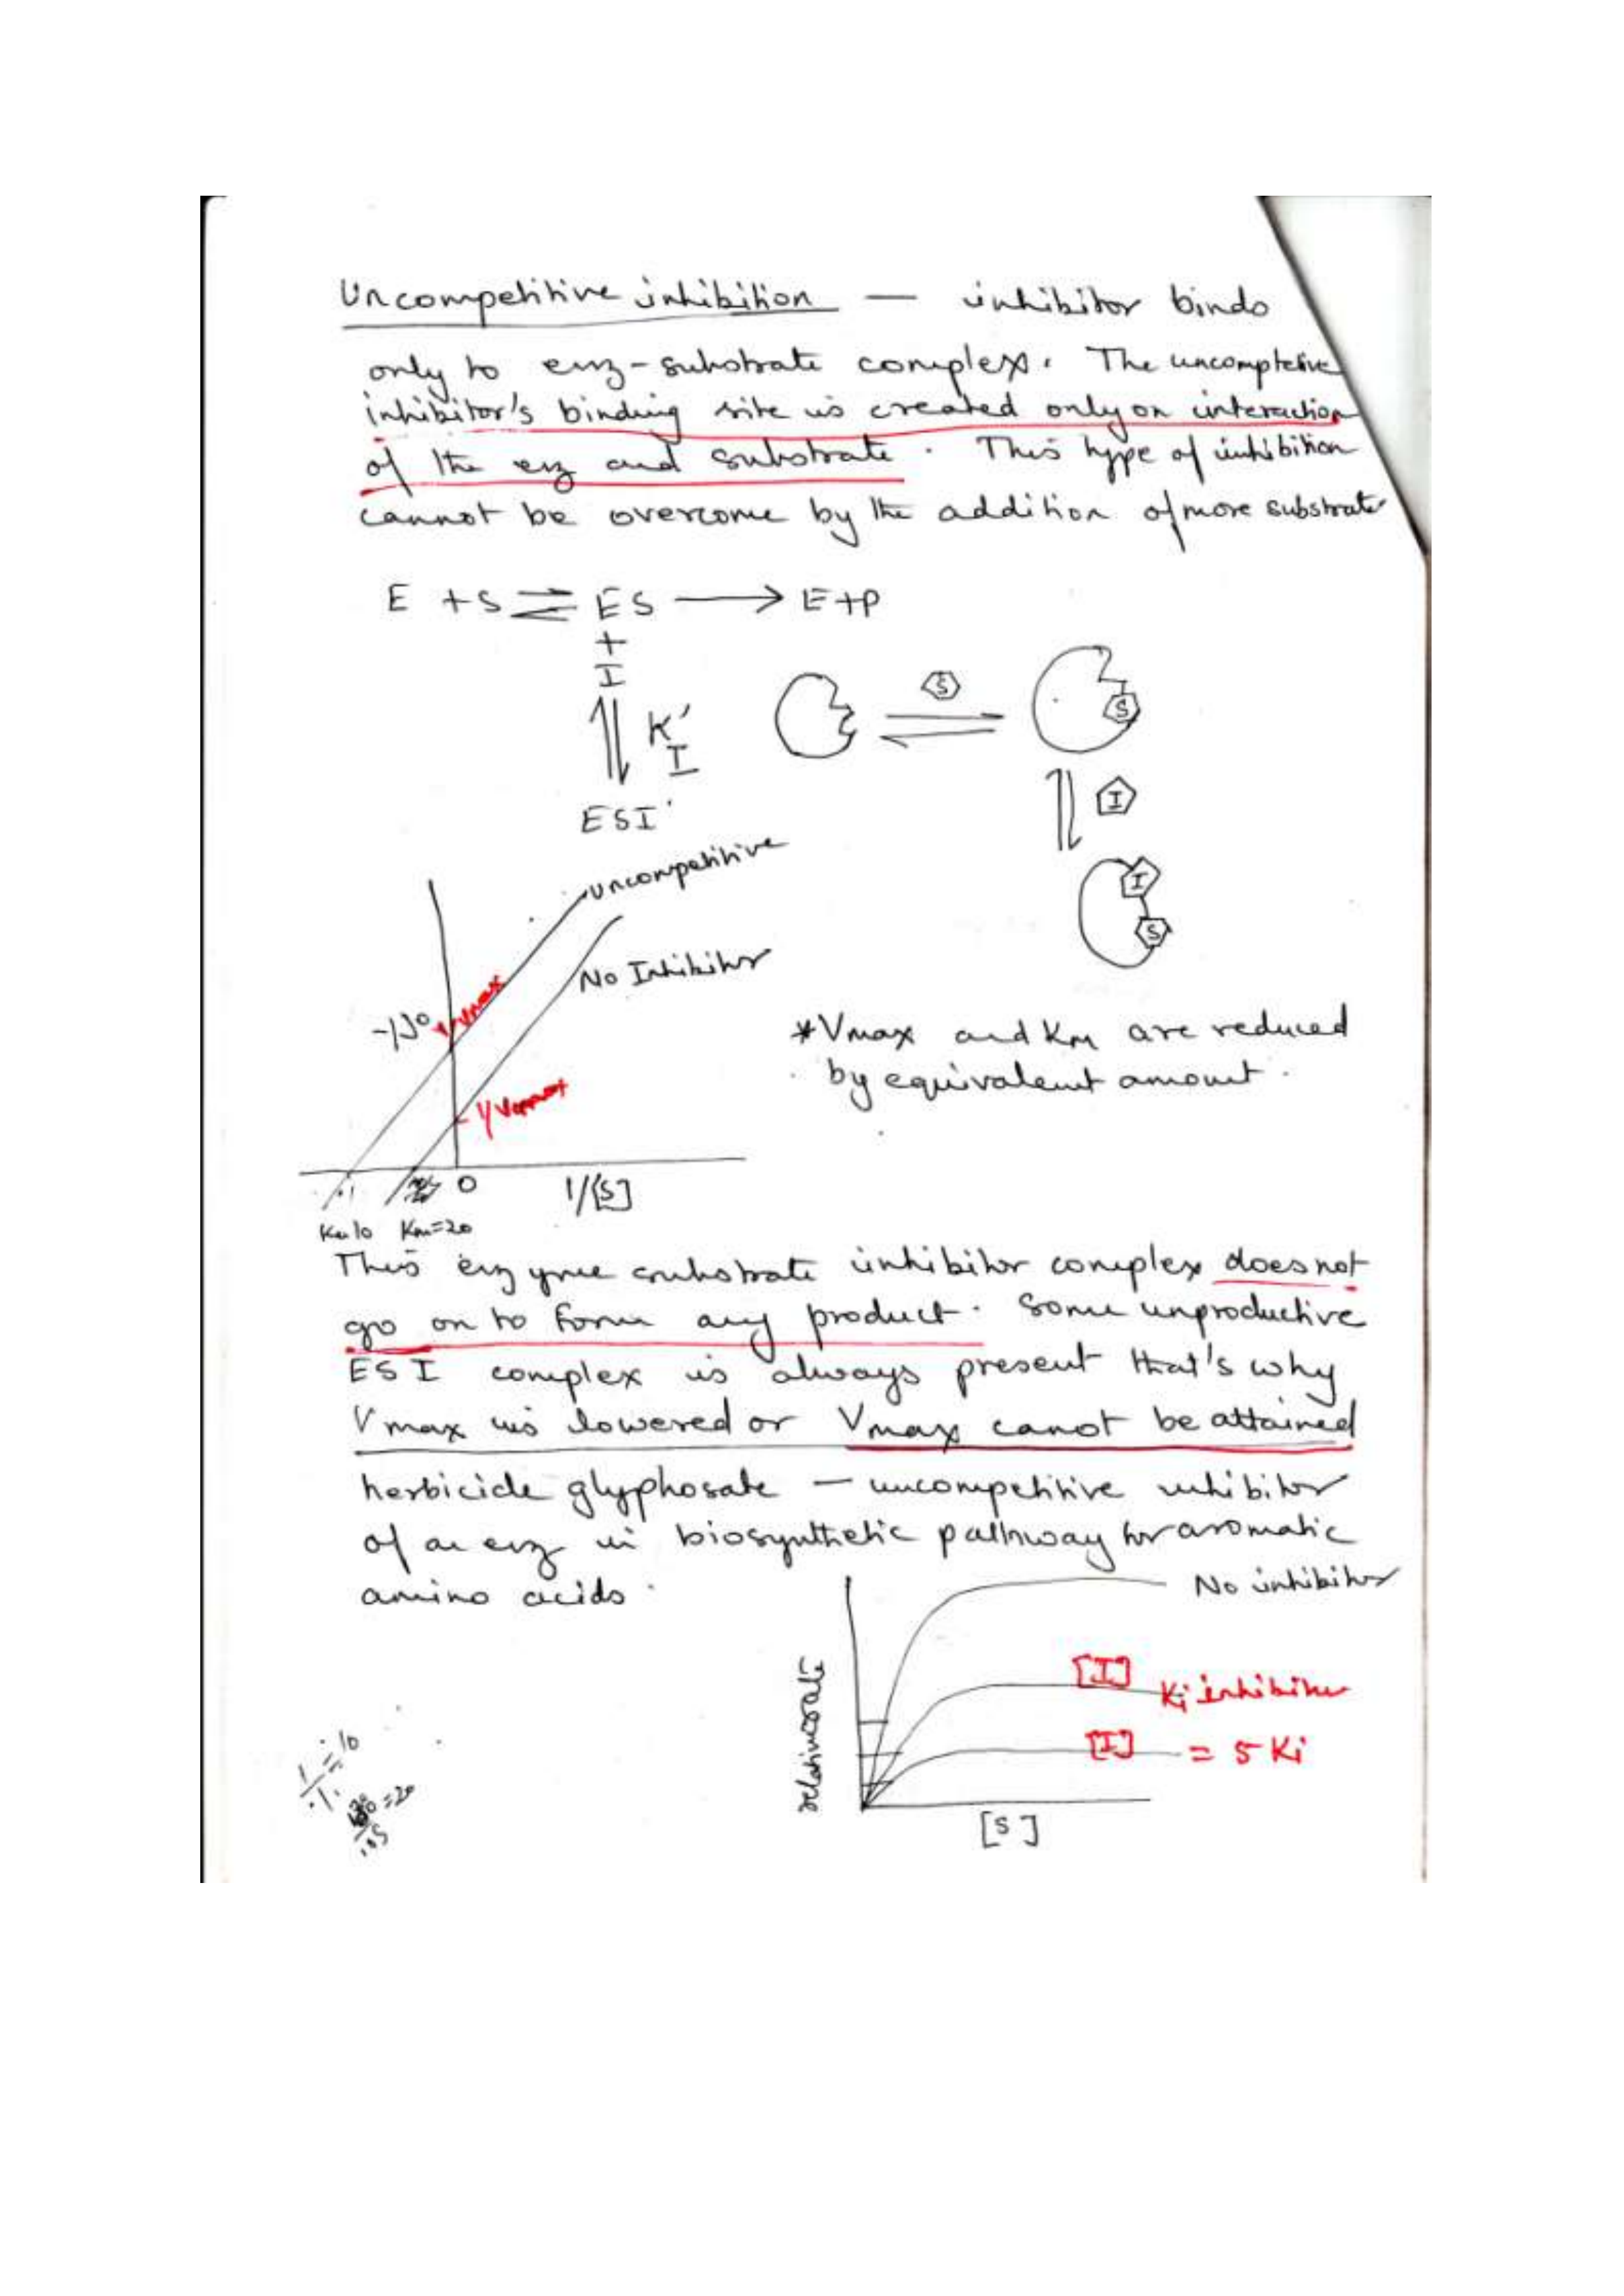 Uncompetitive inhibition — inhibitor binds
only to enz-substrate complex. The uncomptetive
inhibitor's binding site is created only on interaction
of the enz and substrate. This type of inhibition
cannot be overcome by the addition of more substrate
E + S ⇌ ES ⟶ E+P
+
I
K'I
ESI
S
S
I
I
S
uncompetitive
No Inhibitor
1/Vmax
1/Vmax
*Vmax and Km are reduced
by equivalent amount.
.1
0
1/[S]
Km=20
This enzyme substrate inhibitor complex does not
go on to form any product. Some unproductive
ESI complex is always present that's why
Vmax is lowered or Vmax canot be attained
herbicide glyphosate — uncompetitive inhibitor
of an enz in biosynthetic pathway for aromatic
amino acids.
No inhibitor
[I] Ki inhibitor
[I] = 5 Ki
relative rate
[S]
1/.1 = 10